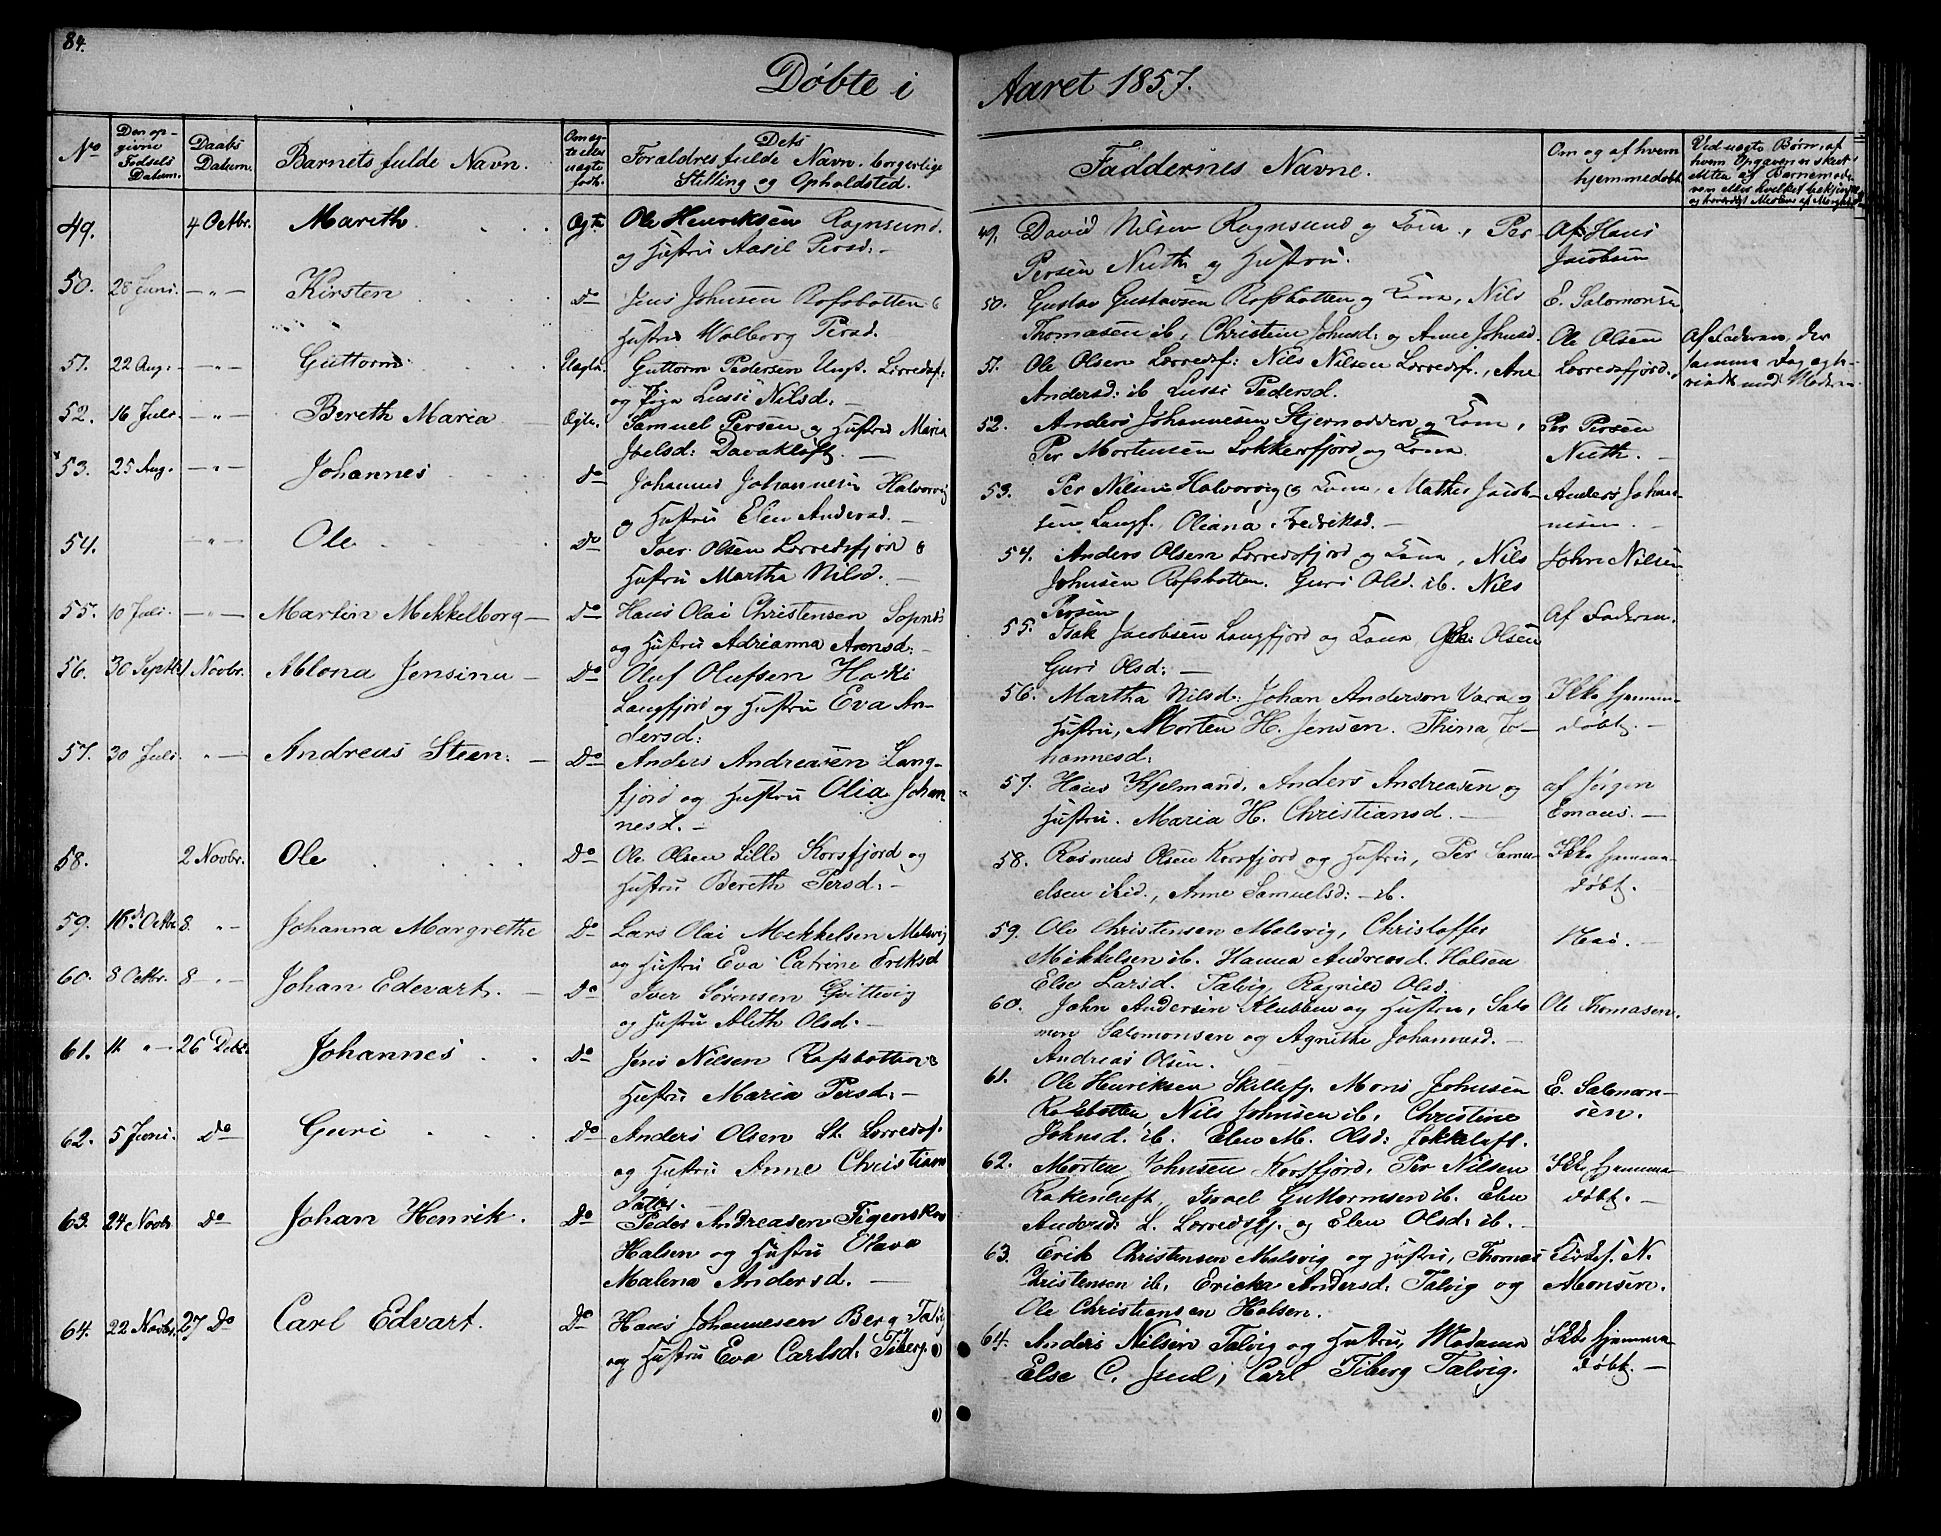 84.
Døbte i Aaret 1857.
No
Den op-
givne
Fødsels
Datum.
Daabs
Datum.
Barnets fulde Navn.
Om æg-
te eller
uægte
født.
Dets
Forældres fulde Navn, borgerlige
Stilling og Opholdsted.
Faddernes Navne.
Om og af hvem
hjemmedøbt
Ved uægte Børn, af
hvem Opgaven er skeet
49. 4 Octbr. Mareth Ægte Ole Henriksen Rognsund.
og Hustru Aasil Persd. —
50. 28 Juni. — " — Kirsten do Jens Johnsen Rafsbotten &
Hustru Walborg Persd.
51. 22 Aug: — " — Guttorm Uægte. Guttorm Pedersen Ungk. Lerredsf:
og Pige Lussi Nilsd: —
52. 16 Juli. — " — Bereth Maria Ægte. Samuel Persen og Hustru Maria
Joelsd: Davakløft. —
53. 25 Aug. — " — Johannes do Johannes Johannesen Halvorvig
og Hustru Elen Andersd. —
54. — " — Ole Do Iver Olsen Lerredsfjord &
Hustru Martha Nilsd. —
55. 10 Juli. — " — Martin Mekkelborg — Do Hans Olai Christensen Sopnes
og Hustru Adrianna Aronsd: —
56. 30 Septbr 1 Novbr. Ablona Jensine — Do Oluf Olufsen Hakki
Langfjord og Hustru Eva An-
dersd:
57. 30 Juli. " — Andreas Steen: — Do Anders Andreasen Lang-
fjord og Hustru Olia Johan
nesd. —
58. 2 Novbr. Ole Do Ole Olsen Lille Korsfjord og
Hustru Bereth Persd: —
59. 16d. Octbr 8 " — Johanna Margrethe Do Lars Olai Mekkelsen Melsvig
og Hustru Eva Catrine Eriksd
60. 8 Octbr. 8 — " — Johan Edevart. — Do Iver Sørensen Qvittvig
og Hustru Alith Olsd. —
61. 11 " — 26 Decbr. Johannes Do Jens Nilsen Rafsbotten &
Hustru Maria Persd: —
62. 5 Juni. Do Guri Do Anders Olsen St. Lerredsf.
og Hustru Anne Christians
datter. —
63. 24 Novbr Do Johan Henrik. Do Peder Andreasen Tigenskov
Halsen og Hustru Olava
Malena Andersd. —
64. 22 Novbr. 27 Do Carl Edvart. Do Hans Johannesen Berg Talvig
og Hustru Eva Carlsd: Tiberg
49. David Nilsen Rognsund og Kone, Per
Persen Nuth og Hustru.
Af Hans
Jacobsen
50. Gustav Gustavsen Rafsbotten og Kone, Nils
Thomasen ib, Christine Johnsd: og Anne Johnsd.
E. Salomonsen
51. Ole Olsen Lerredsf: Nils Nilsen Lerredsf., Ane
Andersd: ib Lussi Pedersd.
Ole Olsen
Lerredsfjord.
Af Faderen, der
samme Dag egte-
viedes med Moderen
52. Anders Johannesen Stjernodden og Kone,
Per Mortensen Lokkerfjord og Kone.
Per Persen
Nuth. —
53. Per Nilsen Halvorvig og Kone, Mathis Jacob-
sen Langf. Oliana Fredriksd. —
Anders Johan-
nesen. —
54. Anders Olsen Lerredsfjord og Kone, Nils
Johnsen Rafsbotten. Guri Olsd. ib. Nils
Persen
John Nilsen
55. Isak Jacobsen Langfjord og Kone, Ole Olsen
Guri Olsd: —
Af Faderen.
56. Martha Nilsd: Johan Anderson Vara og
Hustru, Morten H. Jensen. Thina Jo-
hannesd:
Ikke hjemme-
døbt. —
57. Hans Kjelmand, Anders Andreasen og
Hustru. Maria H. Christiansd. —
af Jørgen
Emaus. —
58. Rasmus Olsen Korsfjord og Hustru, Per Samu-
elsen ibid., Anne Samuelsd: — ib.
Ikke hjemme-
døbt.
59. Ole Christensen Melsvig, Christoffer
Mikkelsen ib. Hanna Andreasd. Halsen
Else Larsd. Talvig, Ragnild Olsd.
Nei. —
60. John Andersen Klubben og Hustru, Salo
mon Salomonsen og Agnethe Johannesd. —
Andreas Olsen. —
Ole Thomasen.
61. Ole Henriksen Skillefj. Mons Johnsen
Rafsbotten, Nils Johnsen ib. Christine
Johnsd. ib. Elen M. Olsd: Jokkeluft.
E. Salomon-
sen.
62. Morten Johnsen Korsfjord, Per Nilsen
Rakenluft, Israel Guttormsen ib. Elen
Andersd: L. Lerredsfj. og Elen Olsd: ib. —
Ikke hjemme-
døbt. —
63. Erik Christensen Melsvig og Hustru, Thomas
Christensen ib, Ericka Andersd: Talvig og
Ole Christiansen Halsen.
Kirkes. N.
Monsen.
64. Anders Nilsen Talvig og Hustru, Madame
Else C. Juul, Carl Tiberg Talvig.
Ikke hjemme-
døbt. —